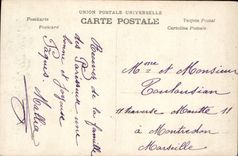 UNION POSTALE UNIVERSELLE
CARTE POSTALE
Postkarte
Postcard
Tarjeta Postal
Cartolina Postale
Reçevez de la famille
des Parisseux une
bonne et joyeuse
Pâques. Malka
Mme et Monsieur
Touloursian
traverse Moutte 11
à Montredon
Marseille